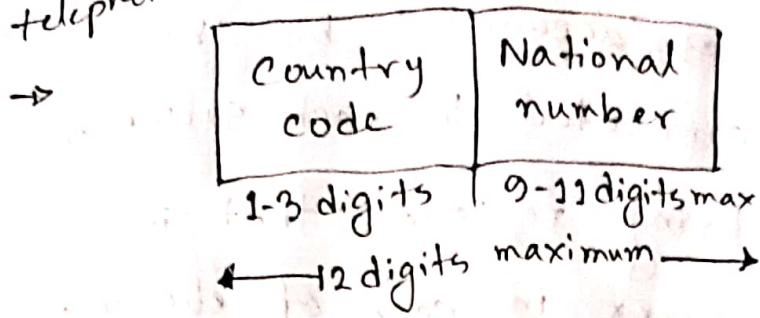 Country code
National number
1-3 digits
9-11 digits max
12 digits maximum